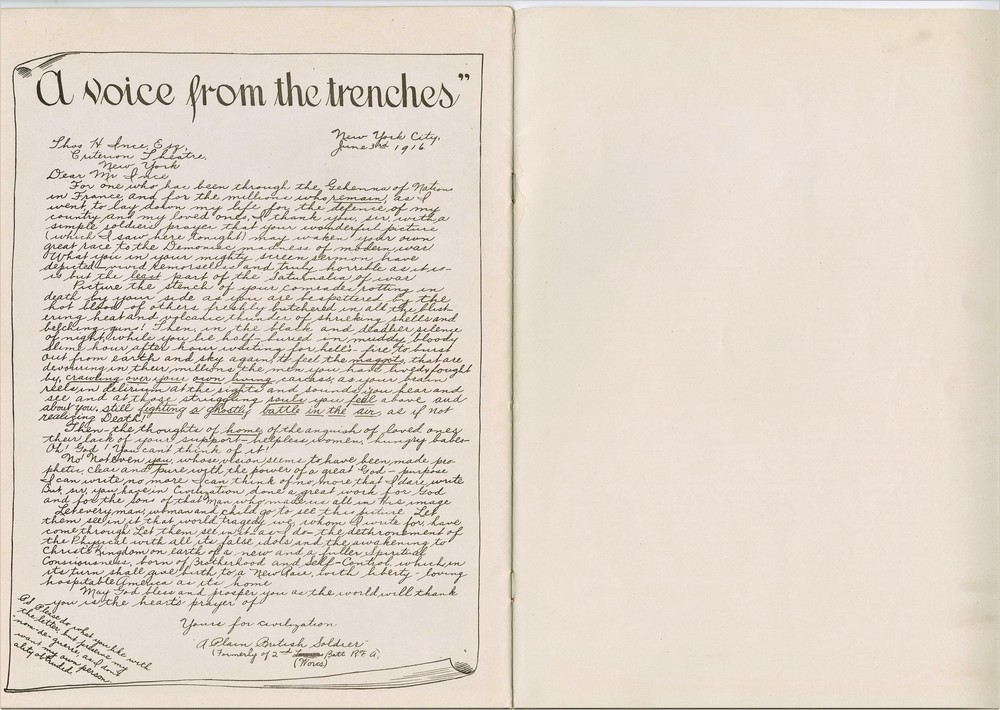 A voice from the trenches"
New York City,
June 3rd 1916
Thos H Ince, Esq,
Criterion Theatre,
New York
Dear Mr Ince
For one who has been through the Gehenna of Nations
in France, and for the millions who remain, as I
went to lay down my life for the defence of my
country and my loved ones, I thank you, sir, with a
simple soldiers prayer that your wonderful picture
(which I saw here tonight) may waken your own
great race to the Demoniac madness of modern war
What you in your mighty screen sermon have
depicted—vivid remorseless and truly horrible as it is—
is but the least part of the Saturnalia of war
Picture the stench of your comrades rotting in
death by your side as you are bespattered by the
hot blood of others freshly butchered in all the blist-
ering heat and volcanic thunder of shrieking shells and
belching guns! Then, in the black and deadlier silence
of night, while you lie half-buried in muddy, bloody
slime hour after hour waiting for hell's-fire to burst
out from earth and sky again, to feel the maggots, that are
devouring in their millions the men you have lived & fought
by, crawling over your own living carcass, as your brain
reels in delirium at the sights and sounds you hear and
see and at those struggling souls you feel above and
about you, still fighting a ghostly battle in the air, as if not
realizing Death!
Then—the thoughts of home, of the anguish of loved ones,
their lack of your support—helpless women, hungry babes—
Oh! God! You cant think of it!
No! Not even you, whose vision seems to have been made pro-
phetic, clear and pure with the power of a great God-purpose
I can write no more I can think of no more that I dare write
But, sir, you have in Civilization done a great work for God
and for the sons of that Man who was crucified in His image
Let every man, woman and child go to see this picture Let
them see in it that world tragedy we, whom I write for, have
come through Let them see in it—as I do—the dethronement of
the Physical with all its false idols and the awakening to
Christs Kingdom on earth of a new and a fuller Spiritual
Consciousness, born of Brotherhood and Self-Control, which in
its turn shall give birth to a New Race, with liberty-loving
hospitable America as its home
May God bless and prosper you as the world will thank
you is the hearts prayer of
Yours for civilization
A Plain British Soldier
(Formerly of 2nd Batt R F A)
(Wores)
PS Please do what you like with
the letter, but preserve my
nom-de-guerre, and don't
want my own person-
ality obtruded.